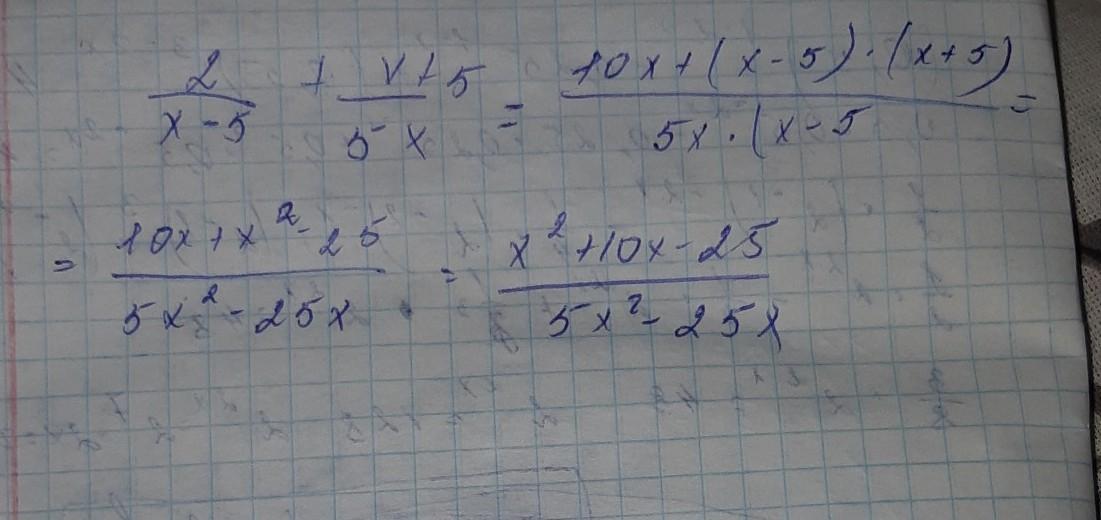 2/(x-5) + (x+5)/(5x) = (10x+(x-5)·(x+5))/(5x·(x-5) =
= (10x+x²-25)/(5x²-25x) = (x²+10x-25)/(5x²-25x)